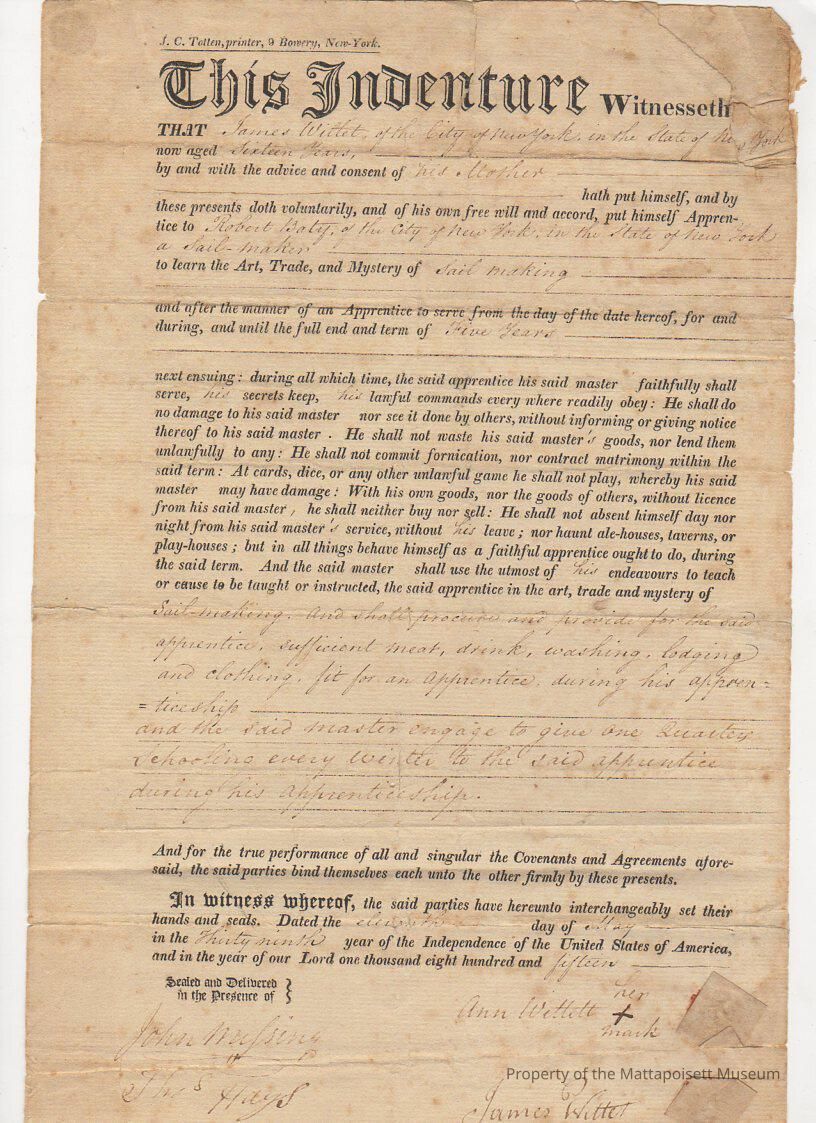 J. C. Totten, printer, 9 Bowery, New-York.
This Indenture Witnesseth
THAT James Wittet, of the City of New York, in the State of New York
now aged Sixteen Years,
by and with the advice and consent of his Mother
hath put himself, and by
these presents doth voluntarily, and of his own free will and accord, put himself Appren-
tice to Robert Baty, of the City of New York, in the State of New York
a Sail-maker
to learn the Art, Trade, and Mystery of Sail making
and after the manner of an Apprentice to serve from the day of the date hereof, for and
during, and until the full end and term of Five Years
next ensuing: during all which time, the said apprentice his said master faithfully shall
serve, his secrets keep, his lawful commands every where readily obey: He shall do
no damage to his said master nor see it done by others, without informing or giving notice
thereof to his said master . He shall not waste his said master's goods, nor lend them
unlawfully to any: He shall not commit fornication, nor contract matrimony within the
said term: At cards, dice, or any other unlawful game he shall not play, whereby his said
master may have damage: With his own goods, nor the goods of others, without licence
from his said master, he shall neither buy nor sell: He shall not absent himself day nor
night from his said master's service, without his leave; nor haunt ale-houses, taverns, or
play-houses; but in all things behave himself as a faithful apprentice ought to do, during
the said term. And the said master shall use the utmost of his endeavours to teach
or cause to be taught or instructed, the said apprentice in the art, trade and mystery of
Sail-making. And shall procure and provide for the said
apprentice, sufficient meat, drink, washing, lodging
and clothing, fit for an apprentice, during his appren=
=ticeship
and the said master engage to give one Quarters
Schooling every winter to the said apprentice
during his apprenticeship.
And for the true performance of all and singular the Covenants and Agreements afore-
said, the said parties bind themselves each unto the other firmly by these presents.
In witness whereof, the said parties have hereunto interchangeably set their
hands and seals. Dated the eleventh day of May
in the thirty ninth year of the Independence of the United States of America,
and in the year of our Lord one thousand eight hundred and fifteen
Sealed and Delivered
in the Presence of
her
Ann Wittett +
mark
John
Thos Hays
Property of the Mattapoisett Museum
James Wittet